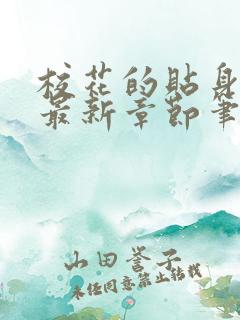 校花的贴身
最新章节笔
山田誉子
未经同意禁止转载